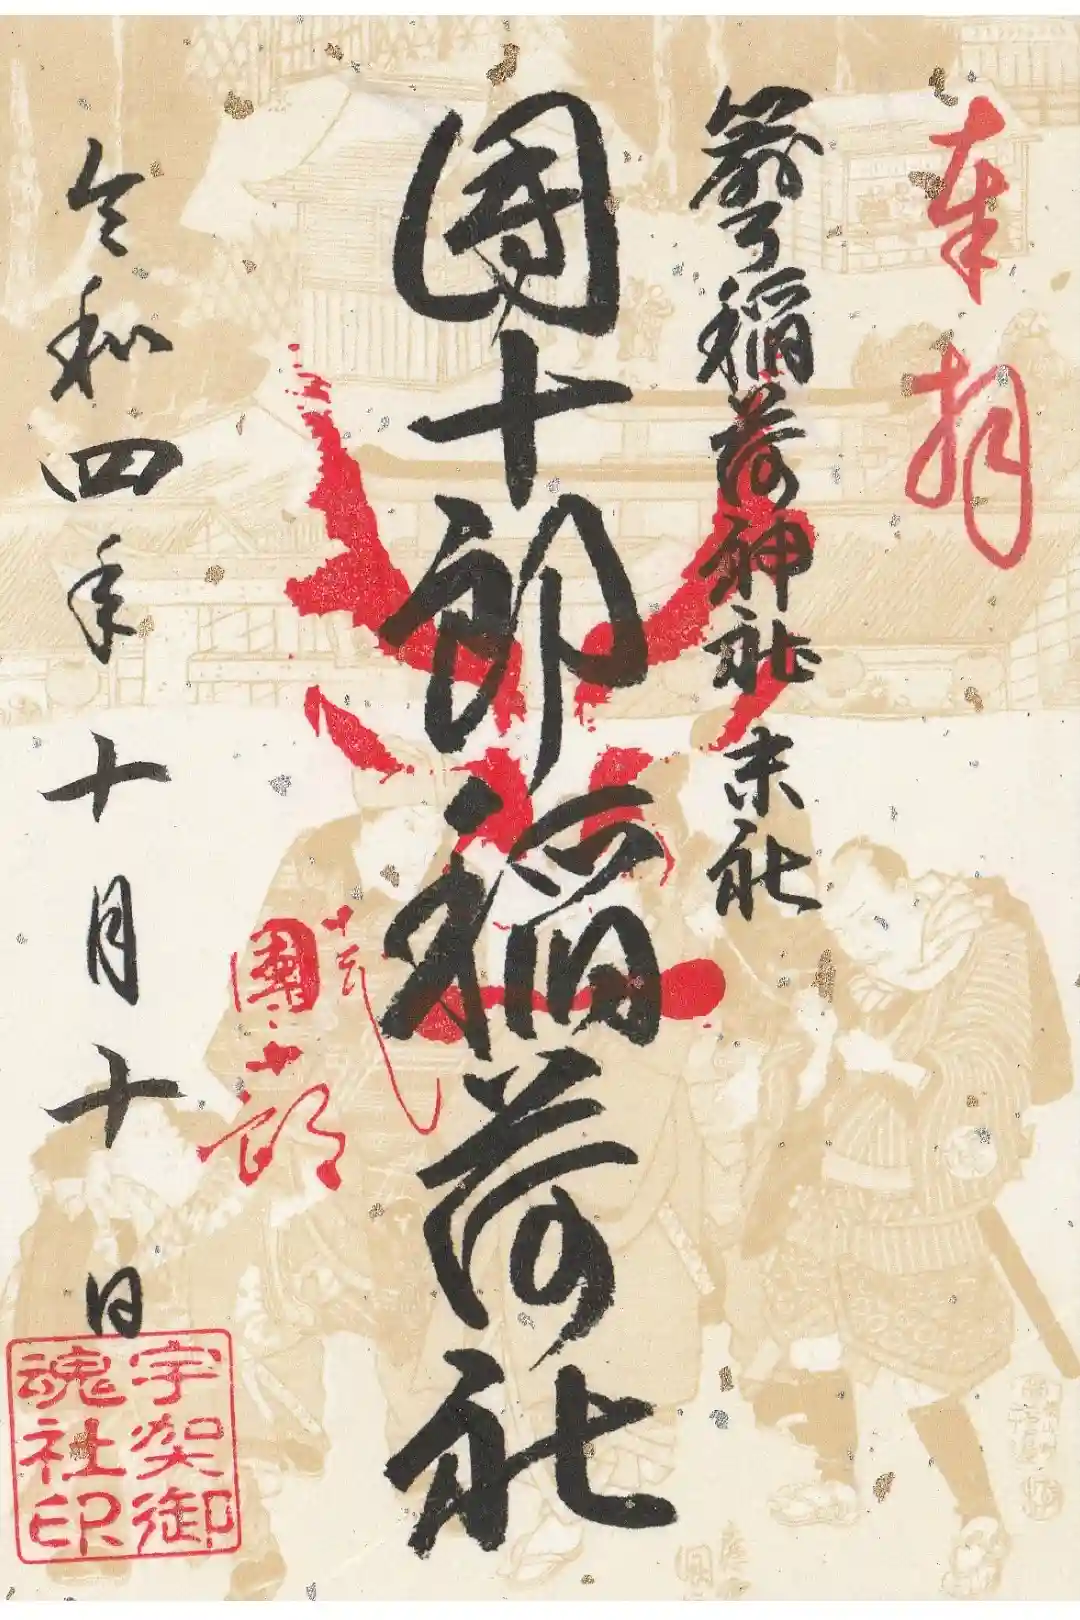 奉拝
箭弓稲荷神社 末社
團十郎稲荷社
團十郎
令和四年十月十日
宇賀御
魂社印